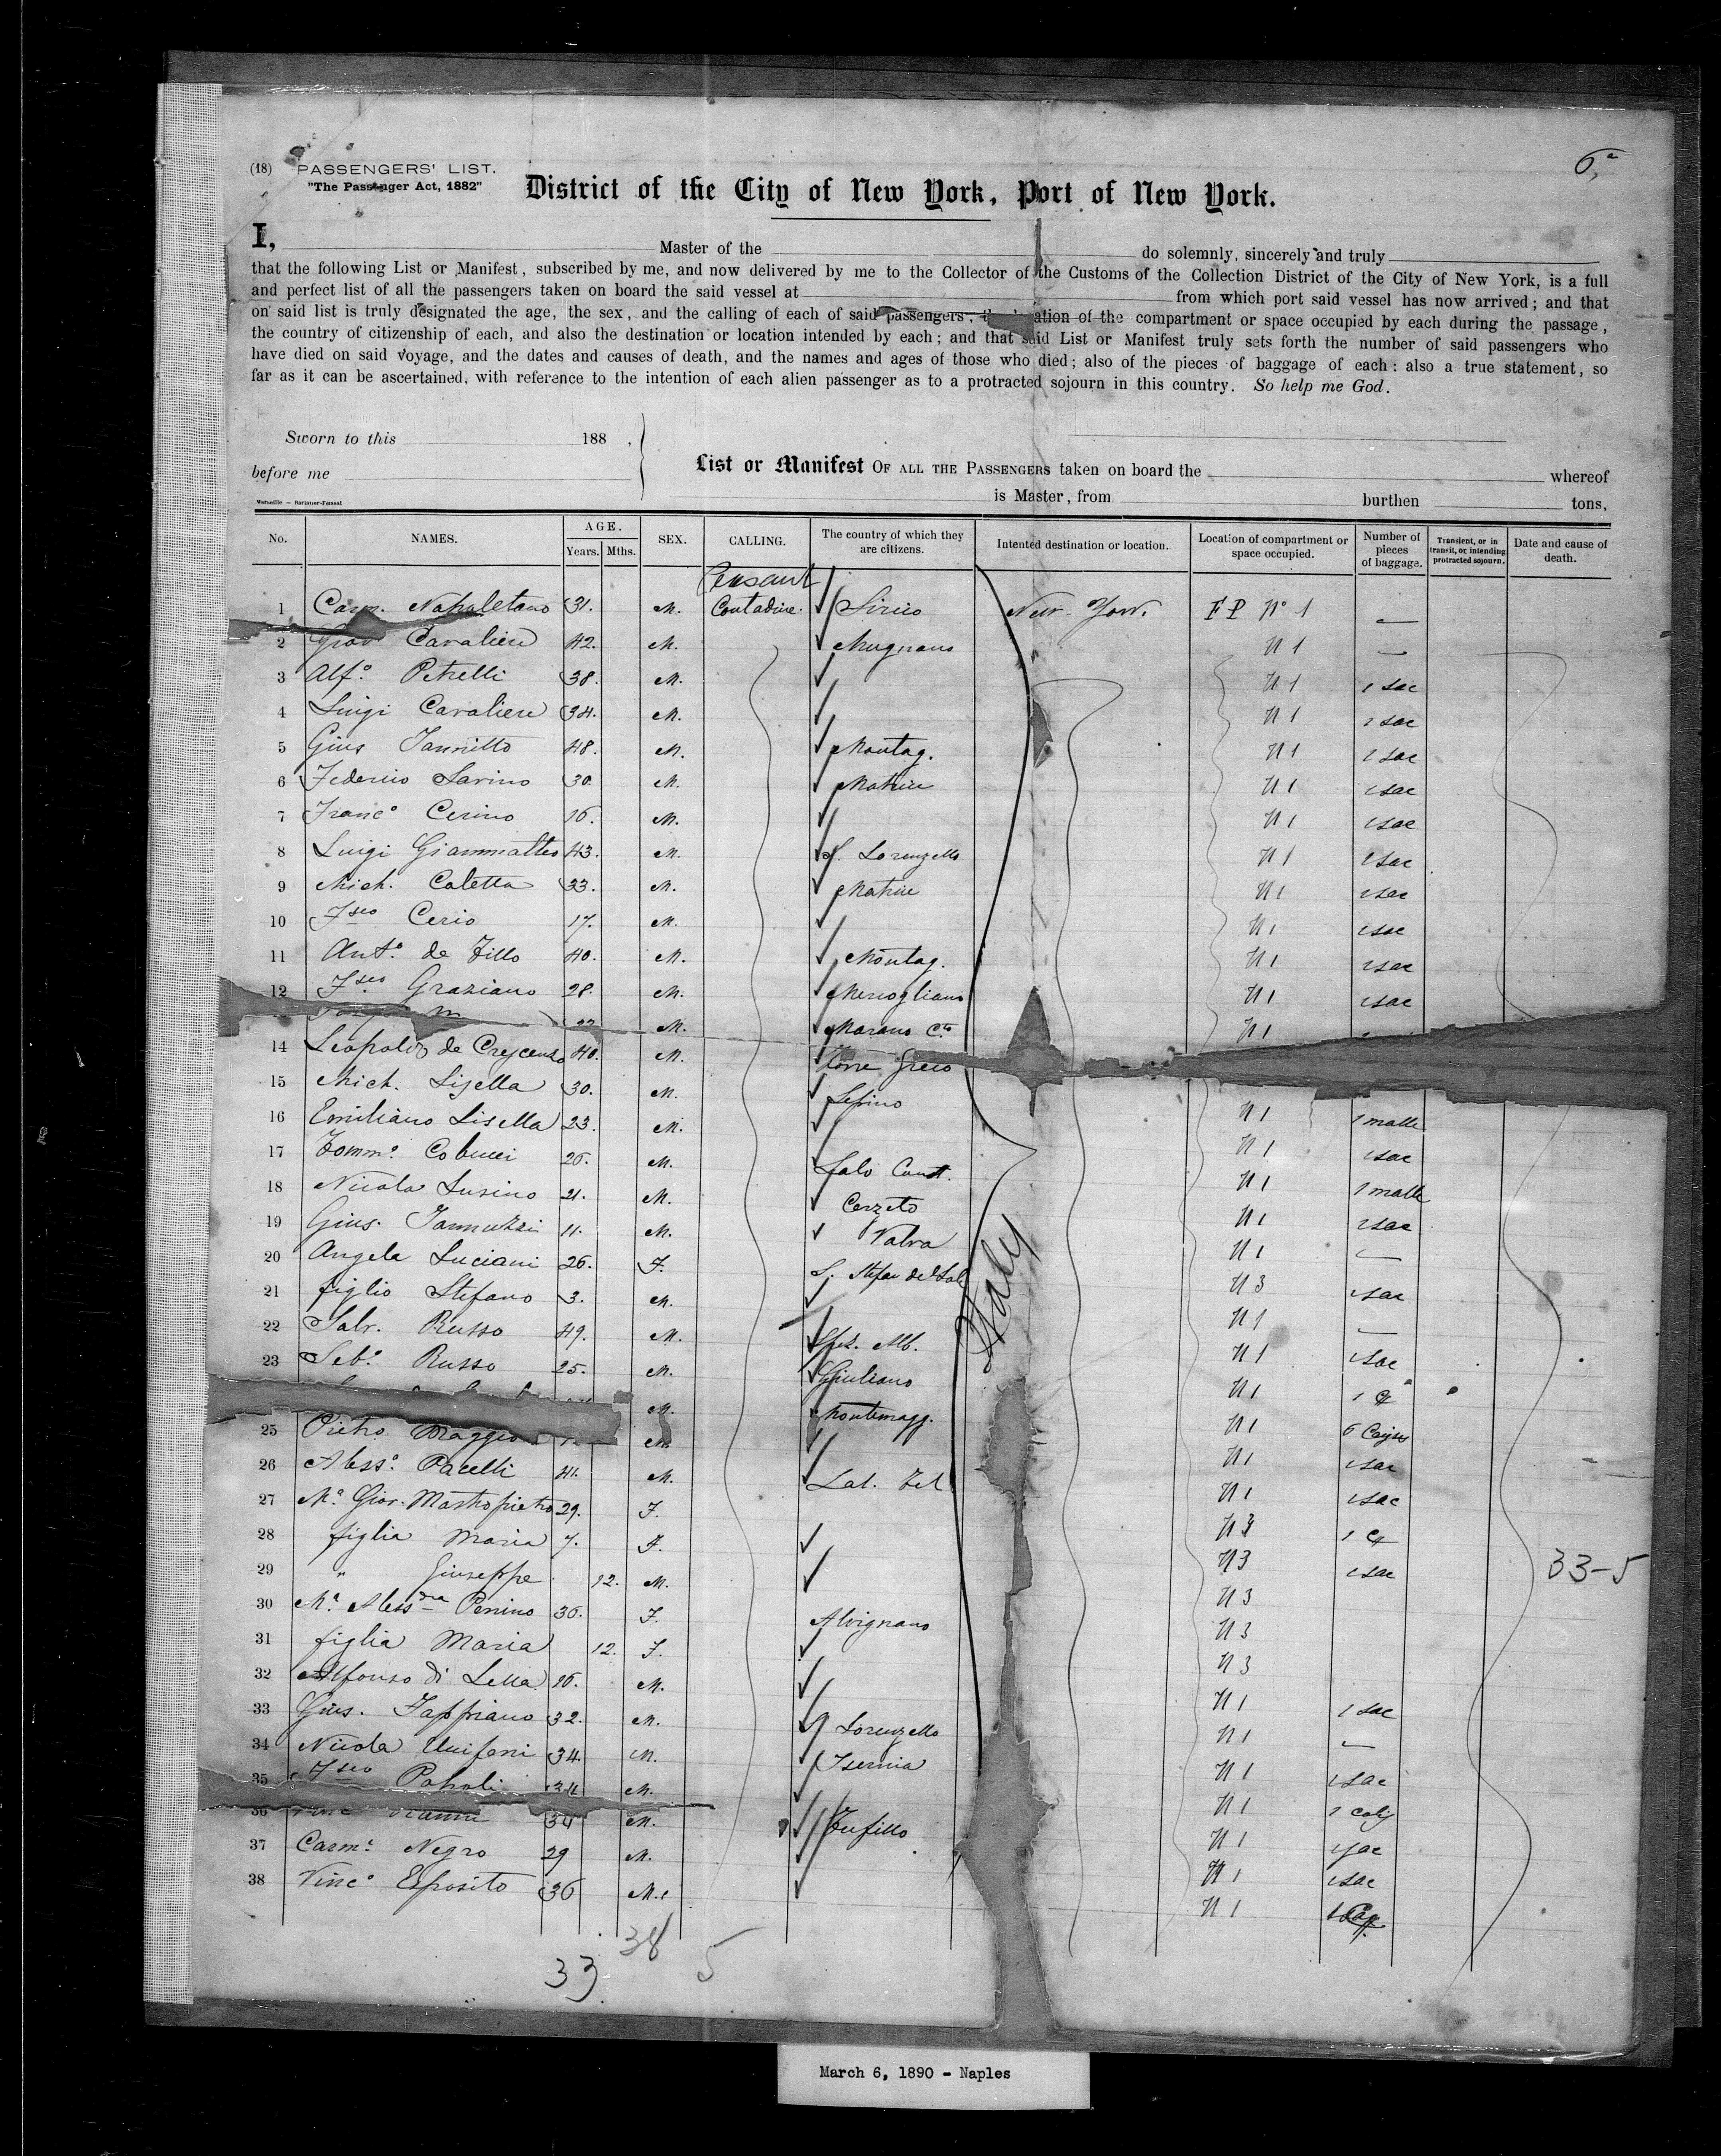 6ª
(18) PASSENGERS' LIST.
"The Passenger Act, 1882"
District of the City of New York, Port of New York.
I, Master of the do solemnly, sincerely and truly
that the following List or Manifest, subscribed by me, and now delivered by me to the Collector of the Customs of the Collection District of the City of New York, is a full
and perfect list of all the passengers taken on board the said vessel at from which port said vessel has now arrived; and that
on said list is truly designated the age, the sex, and the calling of each of said passengers, ation of the compartment or space occupied by each during the passage,
the country of citizenship of each, and also the destination or location intended by each; and that said List or Manifest truly sets forth the number of said passengers who
have died on said voyage, and the dates and causes of death, and the names and ages of those who died; also of the pieces of baggage of each: also a true statement, so
far as it can be ascertained, with reference to the intention of each alien passenger as to a protracted sojourn in this country. So help me God.
Sworn to this 188 .
before me
List or Manifest OF ALL THE PASSENGERS taken on board the whereof
is Master, from burthen tons,
No. NAMES. AGE. Years. Mths. SEX. CALLING. The country of which they are citizens. Intented destination or location. Location of compartment or space occupied. Number of pieces of baggage. Transient, or in transit, or intending protracted sojourn. Date and cause of death.
Peasant
1 Carm. Napoletano 31. M. Contadine Sirico New York. F P N° 1 —
2 Giov Cavaliere 42. M. Mugnano N 1 —
3 Alf° Petrelli 38. M. N 1 1 sac
4 Luigi Cavaliere 34. M. N 1 1 sac
5 Gius Iannitto 48. M. Montag. N 1 1 sac
6 Federico Sarino 30. M. Matrice N 1 1 sac
7 Franc° Cerino 16. M. N 1 1 sac
8 Luigi Giammatteo 43. M. S. Lorenzello N 1 1 sac
9 Mich. Caletta 33. M. Matrice N 1 1 sac
10 Fsco Cerio 17. M. N 1 1 sac
11 Ant° de Tillo 40. M. Montag. N 1 1 sac
12 Fsco Graziano 28. M. Mercogliano N 1 1 sac
M. Marano Cto N 1
14 Leopoldo de Crescenzo 40. M. Torre Greco
15 Mich. Lisella 30. M. Sepino
16 Emiliano Lisella 23. M. N 1 1 malle
17 Tomm° Colucci 26. M. Salo Cons. N 1 1 sac
18 Nicola Susino 21. M. Cerzeto N 1 1 malle
19 Gius. Iannuzzi 11. M. Valva N 1 1 sac
20 Angela Luciani 26. F. S. Stefan del Sole N 1 —
21 figlio Stefano 3. M. N 3 1 sac
22 Salv. Russo 49. M. N 1 —
23 Seb° Russo 25. M. Giuliano N 1 1 sac
M. Montemagg. N 1
25 Pietro Maggio M. N 1 6 Caisses
26 Aless° Pacelli 41. M. Sal. Tel N 1 1 sac
27 Mª Giov. Mastropietro 29. F. N 1 1 sac
28 figlia Maria 7. F. N 3
29 " Giuseppe 12. M. N 3 1 sac
30 Mª Alessdra Perrino 36. F. Alvignano N 3
31 figlia Maria 12. F. N 3
32 Alfonso di Lella 16. M. N 3
33 Gius. Iappiano 32. M. S. Lorenzello N 1 1 sac
34 Nicola 34 M. Isernia N 1 —
35 Fsco Papoli 34 M. N 1 1 sac
36 34 M. Tufillo N 1 1 colis
37 Carm° Negro 29 M. N 1 1 sac
38 Vinc° Esposito 36 M. N 1 1 sac
N 1
Italy
33-5
38
33 5
March 6, 1890 - Naples